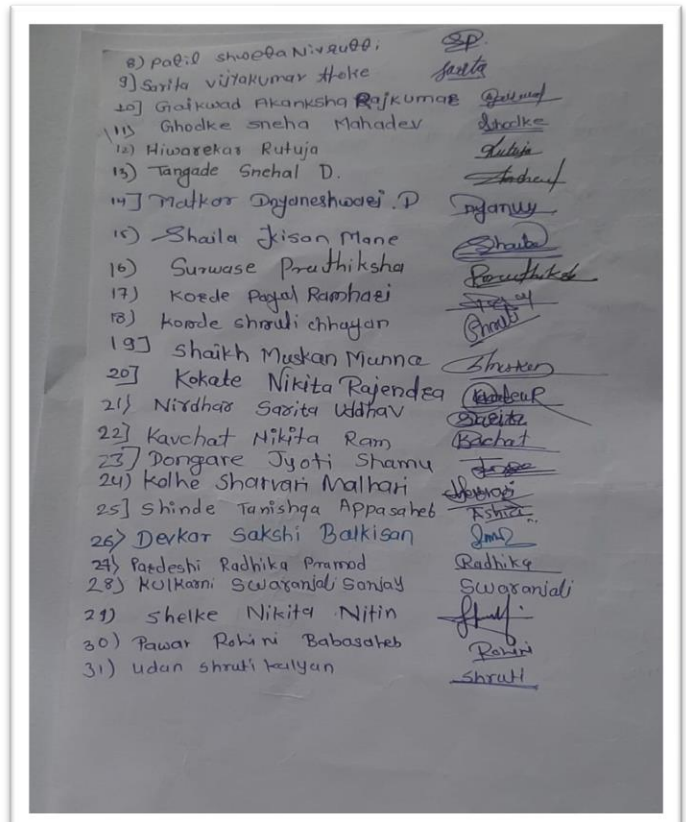 8) Patil Shweta Nivrutti SP.
9] Sarita Vijyakumar Hoke Sarita
10] Gaikwad Akanksha Rajkumar
11) Ghodke Sneha Mahadev Ghodke
12) Hiwarekar Rutuja Rutuja
13) Tangade Snehal D.
14] Matkar Dnyaneshwari .D
15) Shaila Kisan Mane Shaila
16) Surwase Pruthiksha
17) Korde Payal Ramhari
18) Korde Shruti Chhayan Shruti
19] Shaikh Muskan Munna
20] Kokate Nikita Rajendra
21) Nirdhar Sarita Uddhav Sarita
22] Kavchat Nikita Ram Kachat
23] Dongare Jyoti Shamu
24) Kolhe Sharvari Malhari
25] Shinde Tanishqa Appasaheb
26) Devkar Sakshi Balkisan
27) Pardeshi Radhika Pramod Radhika
28) Kulkarni Swaranjali Sanjay Swaranjali
29) Shelke Nikita Nitin
30) Pawar Rohini Babasaheb Rohini
31) Udan Shruti Kalyan Shruti